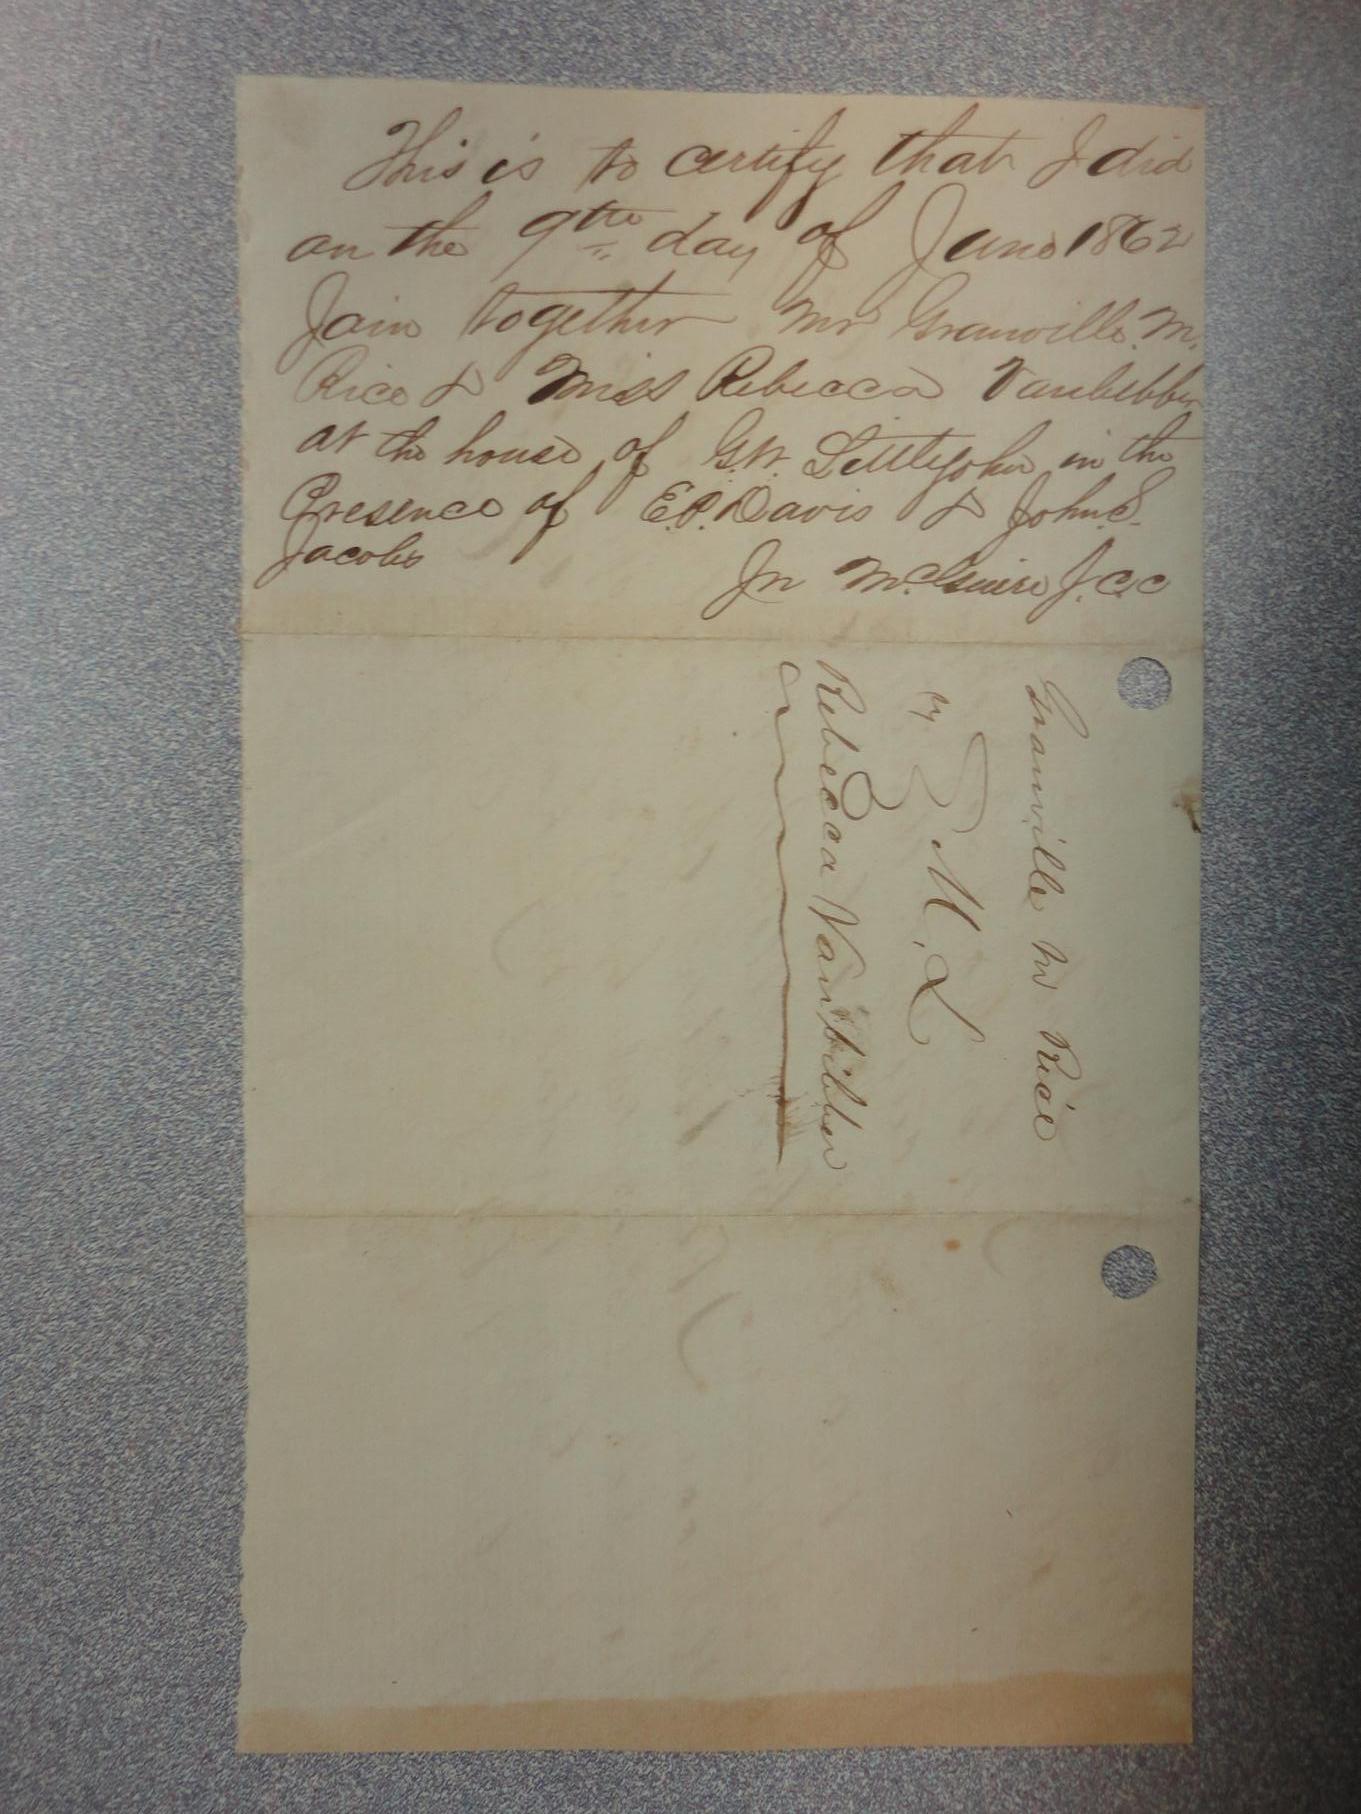 This is to certify that I did
on the 9th day of June 1862
Join together Mr Granville M.
Rice & Miss Rebecca Vanbibber
at the house of G.W. Littlejohn in the
Presence of E.P. Davis & John S.
Jacobs
Jn McGuire J.C.C
Granville M Rice
M. L
Rebecca Vanbibber